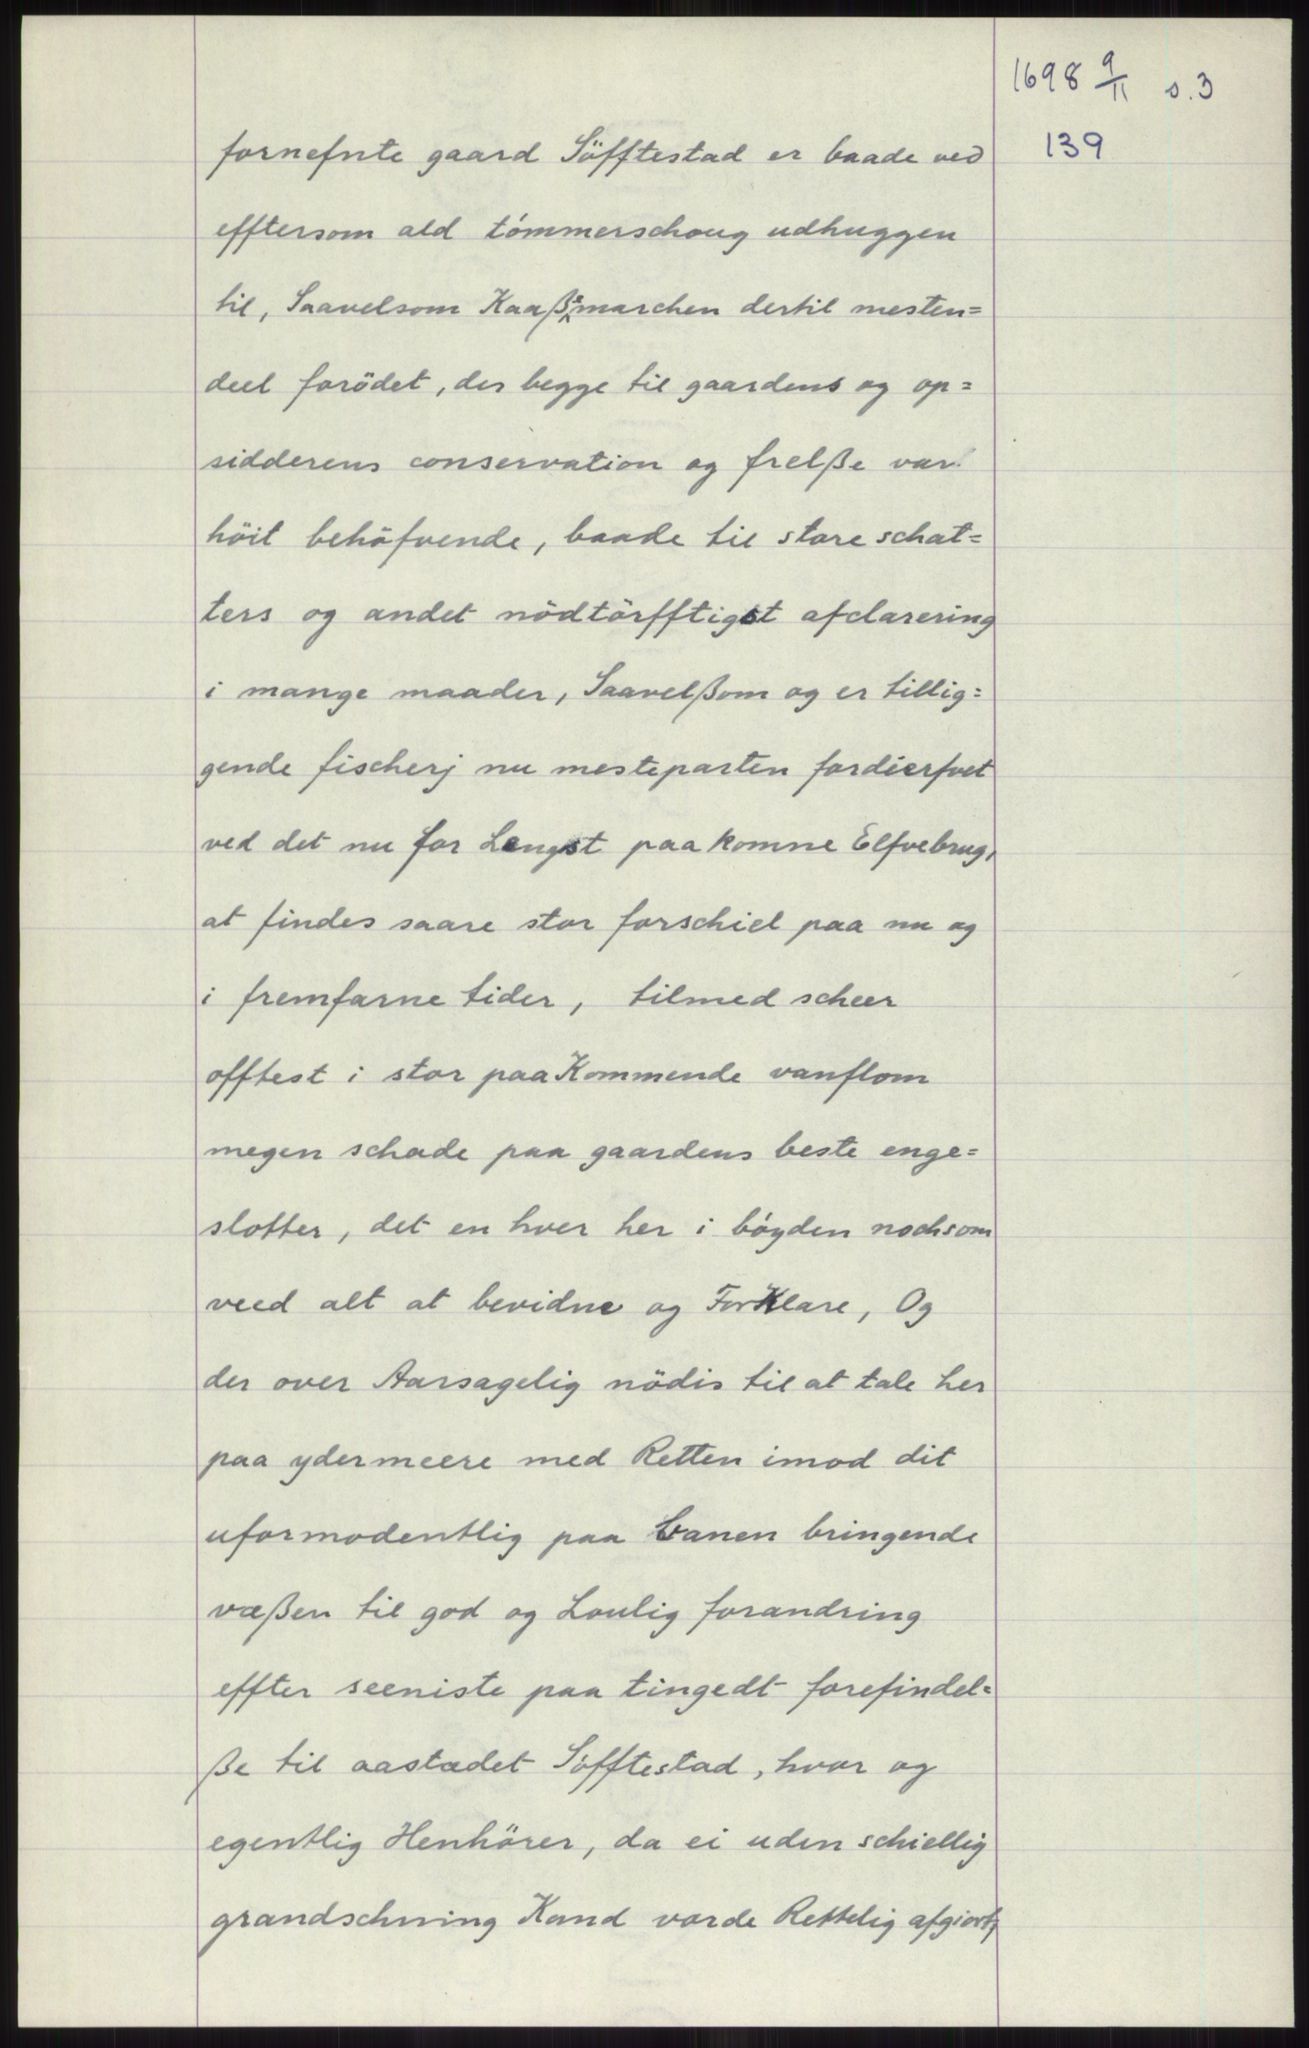 1698 9/11 s. 3
139
fornefnte gaard Söfftestad er baade ved
efftersom ald tömmerschoug udhuggen
til, Saavelsom Kaaßmarchen dertil mesten=
deel forödet, der begge til gaardens og op=
sidderens conservation og frelße var
höit behöfvende, baade til store schat=
ters og andet nödtörfftigst afclarering
i mange maader, Saavelßom og er tillig=
gende fischerj nu mesteparten fordierfvet
ved det nu for Lengst paa komne Elfvebrug,
at findes saare stor forschiel paa nu og
i fremfarne tider, tilmed scheer
offtest i stor paa Kommende vanflom
megen schade paa gaardens beste enge=
slotter, det en hver her i böyden nochsom
veed alt at bevidne og ForKlare, Og
der over Aarsagelig nödis til at tale her
paa ydermeere med Retten imod dit
uformodentlig paa banen bringende
væßen til god og Loulig forandring
effter seeniste paa tingedt forefindel=
ße til aastædet Söfftestad, hvor og
egentlig Henhörer, da ei uden schiellig
grandschning Kand vorde Rettelig afgiort,